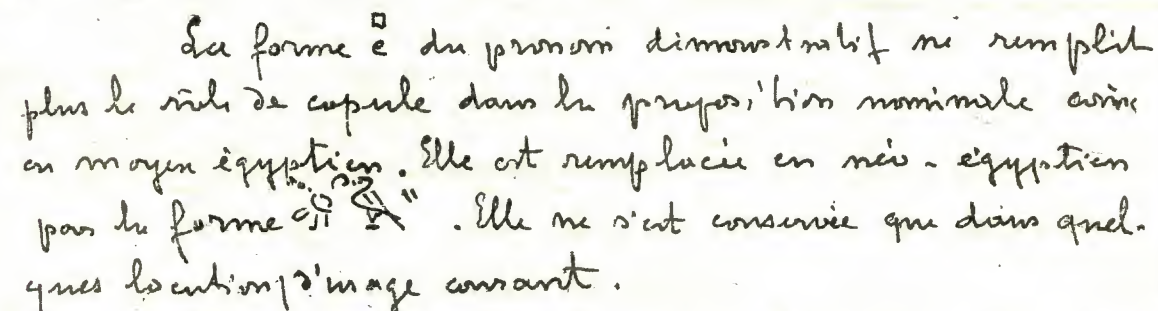 La forme 𓊪𓅱 du pronom démonstratif ne remplit
plus le rôle de copule dans la proposition nominale comme
en moyen égyptien. Elle est remplacée en néo-égyptien
par la forme . Elle ne s'est conservée que dans quel-
ques locutions d'usage courant.